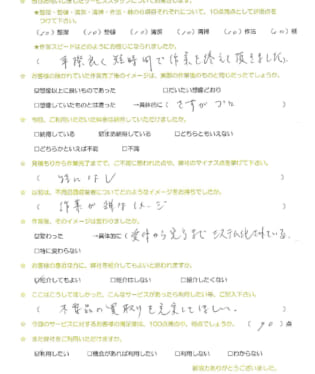 ★整理・整頓・清掃・清潔・作法・躾の6項目それぞれについて、10点満点としてが得点を
つけて下さい。
★作業スピードはどのようにお感じになられましたか。
手際良く短時間で作業を終えて頂きました。
※ お客様の抱かれていた作業完了後のイメージは、実際の作業後のものと同じだったでしょうか。
☑想像以上に良いものであった □だいたい想像どおり
□想像していたものとは違った →具体的に(
※ 今回、ご利用いただいた料金は納得していただけましたか。
□納得している ☑まあ納得している □どちらともいえない
□どちらかといえば不満 □不満
※ 見積もりから作業完了までで、ご不満に思われた点や、弊社のマイナス点を挙げて下さい。
( 特になし )
※ 以前は、不用品回収業者についてどのようなイメージをお持ちでしたか。
( 作業が雑なイメージ )
※ 作業後、そのイメージは変わりましたか。
☑変わった →具体的に( 受付から完了までシステム化されている。
□特に変わらない
※ お客様の身近な方に、弊社を紹介してもよいと思われますか。
☑紹介してもよい □紹介はしない □紹介したくない
※ ここはこうしてほしかった、こんなサービスがあったら利用したい等、ご記入下さい。
( 不要品の買取りを充実してほしい。 )
※ 今回のサービスに対するお客様の満足度は、100点満点の、何点でしょうか。 ( 90 ) 点
※ また弊社をご利用いただけますか。
☑利用したい □機会があれば利用したい □利用しない □わからない
ご協力ありがとうございました。